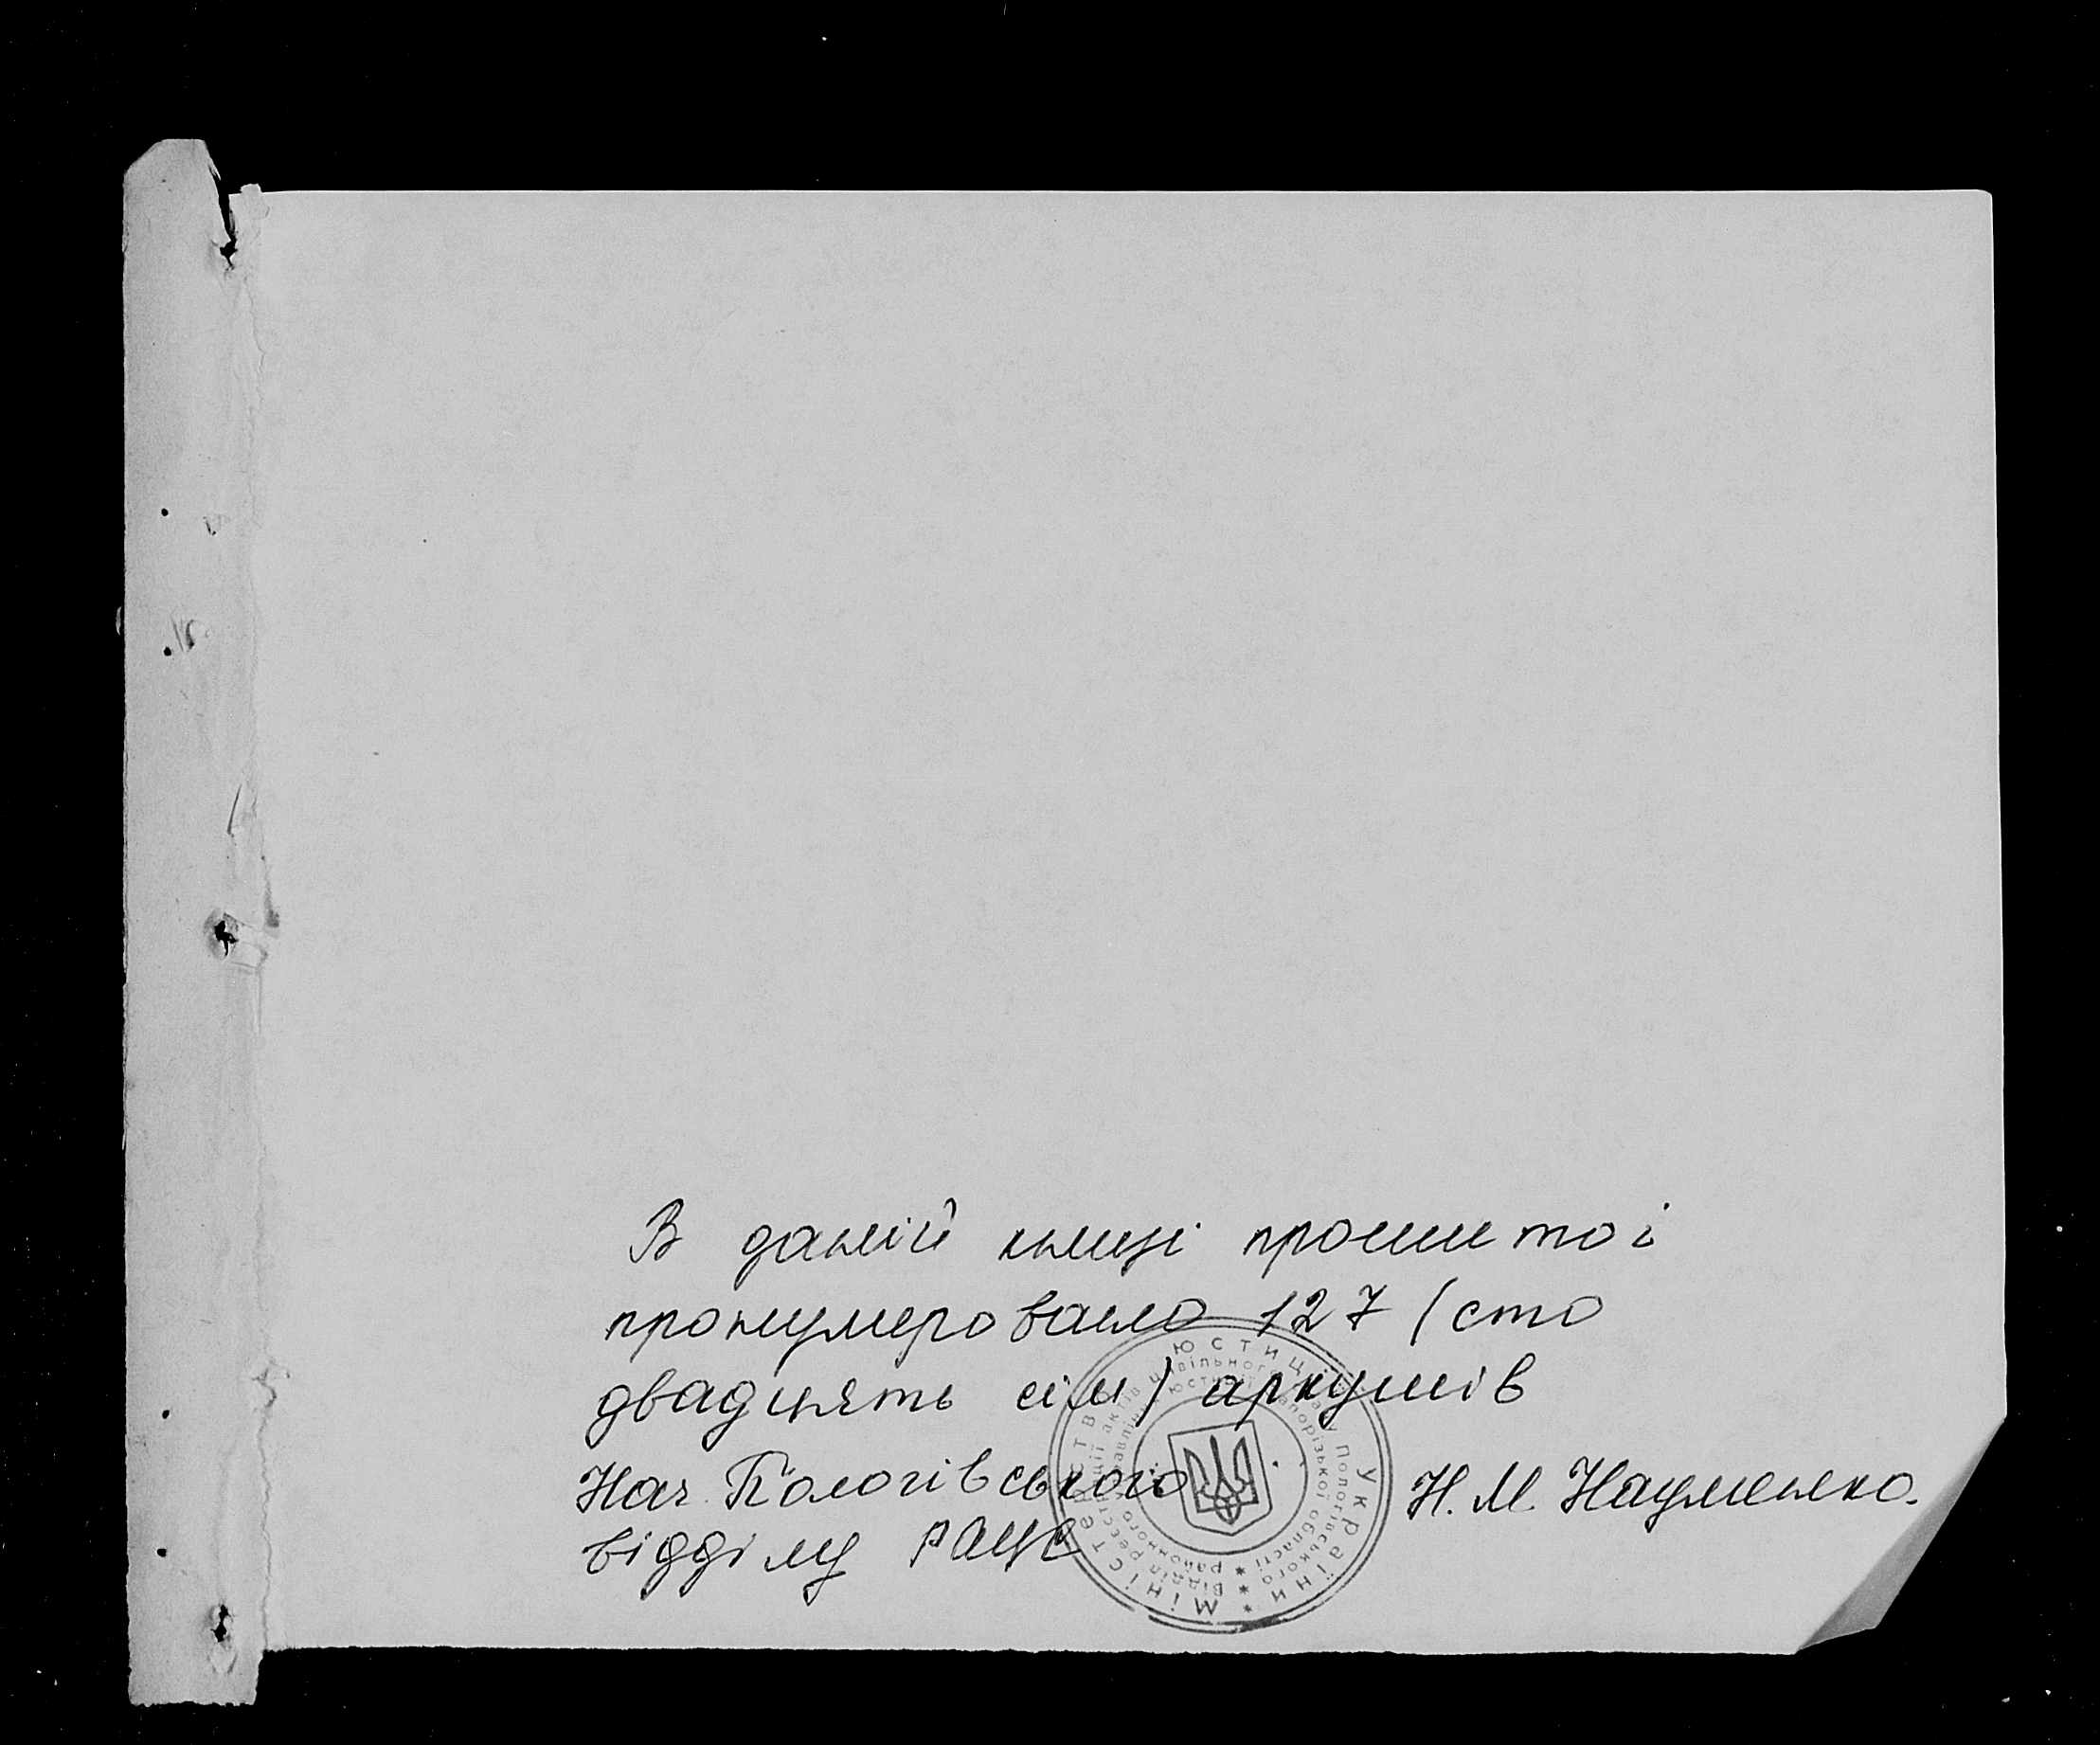 В даній книзі прошито і
пронумеровано 127 (сто
двадцять сім) аркушів
Нач. Пологівського
відділу РАЦС
Н. М. Науменко.
Міністерство юстиції України *
Відділ реєстрації актів цивільного стану Пологівського *
районного управління юстиції Запорізької області *